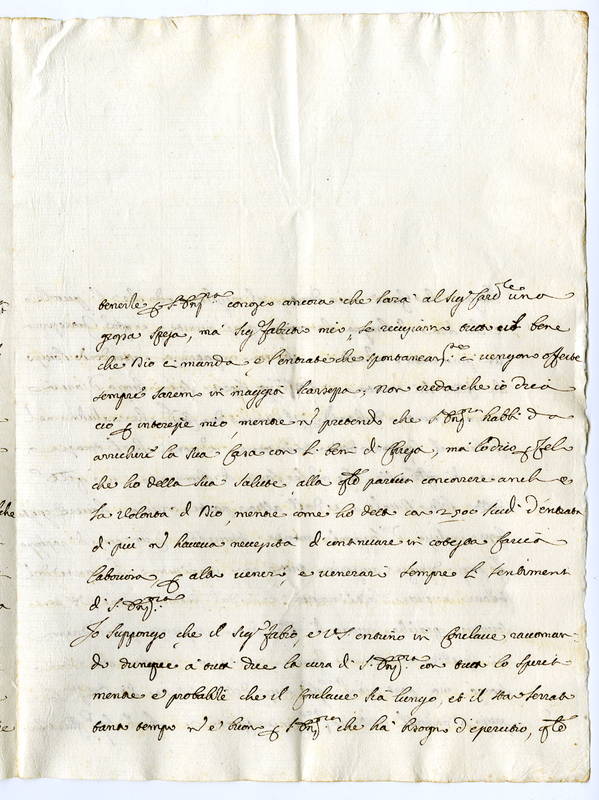 tenerle p S. Em.za conosco ancora che sarà al Sig.r Card.le una
grossa spesa, mà Sig.r fabritio mio, se recusiamo tutto il bene
che Dio ci manda, e l'entrate che spontaneam.te ci vengono offerte
sempre saremo in maggior scarsezza; non creda che io dica
ciò p interesse mio, mentre nõ pretendo che S. Em.za habbi da
arrichire la sua Casa con li beni di Chiesa, mà lo dico p zelo
che ho della sua salute, alla q.le parmi concorrere anche
la volontà di Dio, mentre come ho detto con 2500 scudi d'entrata
di più nõ haveva necessità di continuare in cotesta carica
laboriosa, p altro venero e venerarò sempre li sentimenti
di S. Em.za
Io suppongo che il Sig.r fabio, e V.S. entrino in Conclave raccoman-
do dunque à tutti due la cura di S. Em.za con tutto lo spirito
mentre è probabile che il Conclave sia lungo, et il star serrato
tanto tempo nõ è buono p S. Em.za che hà bisogno d'esercitio, q.le